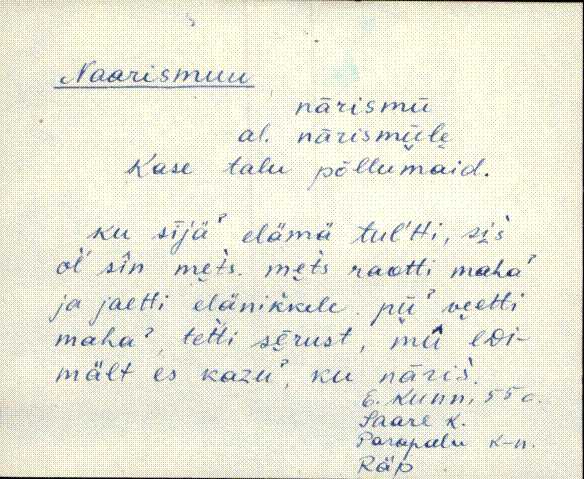 Naarismuu
nārismū
al. nārismūle
Kase talu põllumaid.
ku sījä² elämä tul'tti, siis
ol' sîn mets. mets raotti maha²
ja jaetti elänikkele. pū² veotti
maha², tetti sērust, mū edi-
mält es kazu², ku näris.
E. Kunn, 55 a.
Saare k.
Parapalu k-n.
Räp